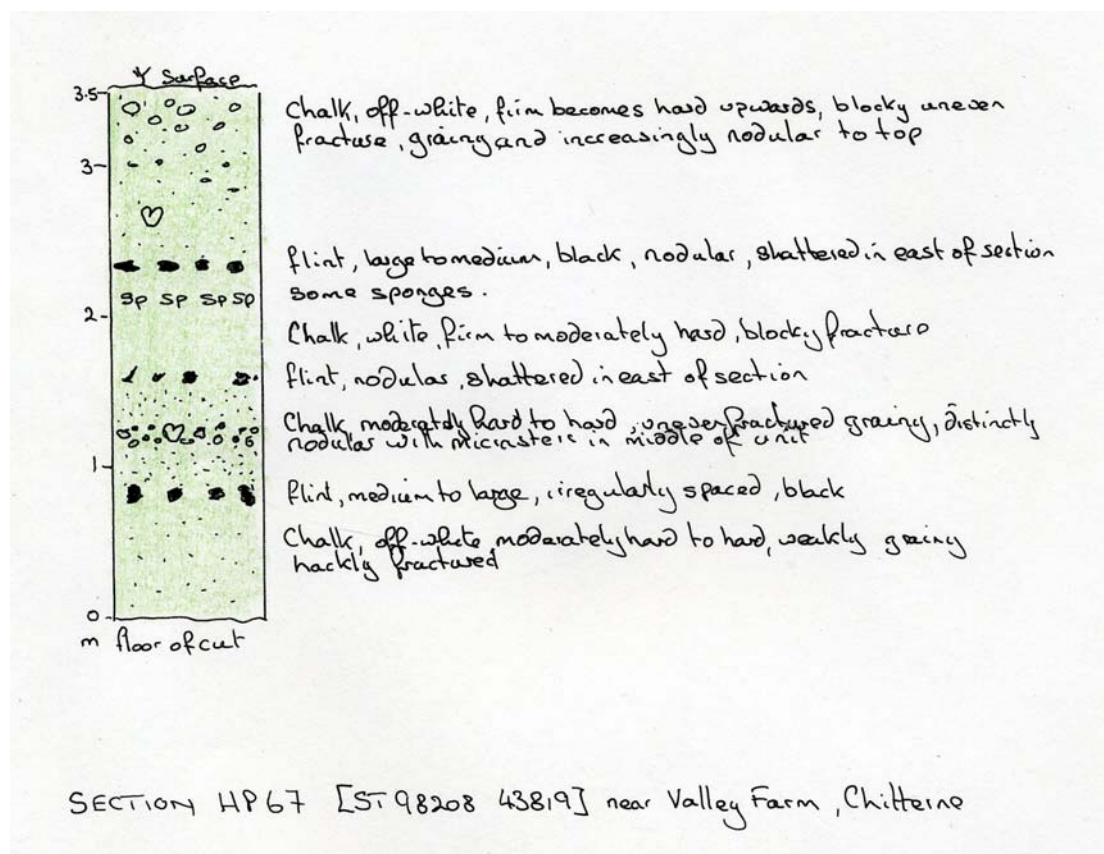 Surface
3.5
Chalk, off-white, firm becomes hard upwards, blocky uneven
fracture, grainy and increasingly nodular to top
3
flint, large to medium, black, nodular, shattered in east of section
some sponges.
sp sp sp sp
2
Chalk, white, firm to moderately hard, blocky fracture
flint, nodular, shattered in east of section
Chalk, moderately hard to hard, uneven fractured grainy, distinctly
nodular with micrasters in middle of unit
1
flint, medium to large, irregularly spaced, black
Chalk, off-white moderately hard to hard, weakly grainy
hackly fractured
0
m floor of cut
SECTION HP67 [ST 98208 43819] near Valley Farm, Chitterne